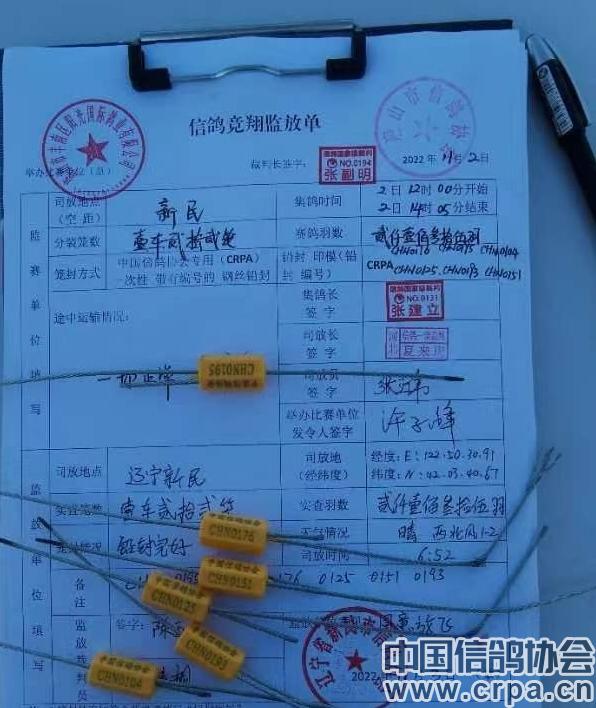 信鸽竞翔监放单
裁判长签字:
NO.0194
张副明
2022年11月2日
举办比赛单位(章)
监赛单位填写
司放地点
(空距)
新民
集鸽时间
2日12时00分开始
2日14时05分结束
分装笼数
壹车贰拾贰笼
赛鸽羽数
贰仟壹佰叁拾伍羽
笼封方式
中国信鸽协会专用(CRPA)
一次性 带有编号的 钢丝铅封
铅封 印模(铅
封 编号)
CHN0176 CHN0195 CHN0104
CRPA CHN0125 CHN0193 CHN0151
途中运输情况:
一切正常
集鸽长
签字
NO.0131
张建立
司放长
签字
河北
夏来
司放员
签字
举办比赛单位
发令人签字
监放单位填写
司放地点
辽宁新民
司放地
(经纬度)
经度:E:122.50.30.91
纬度:N:42.03.40.67
实查笼数
壹车贰拾贰笼
实查羽数
贰仟壹佰叁拾伍羽
铅封完好
天气情况
晴 西北风1-2
司放时间
6:52
备注
0125 0151 0193
签字:
CHN0195
CHN0176
中国信鸽协会
CHN0151
中国信鸽协会
CHN0125
CHN0193
中国信鸽协会
CHN0104
中国信鸽协会
www.crpa.cn